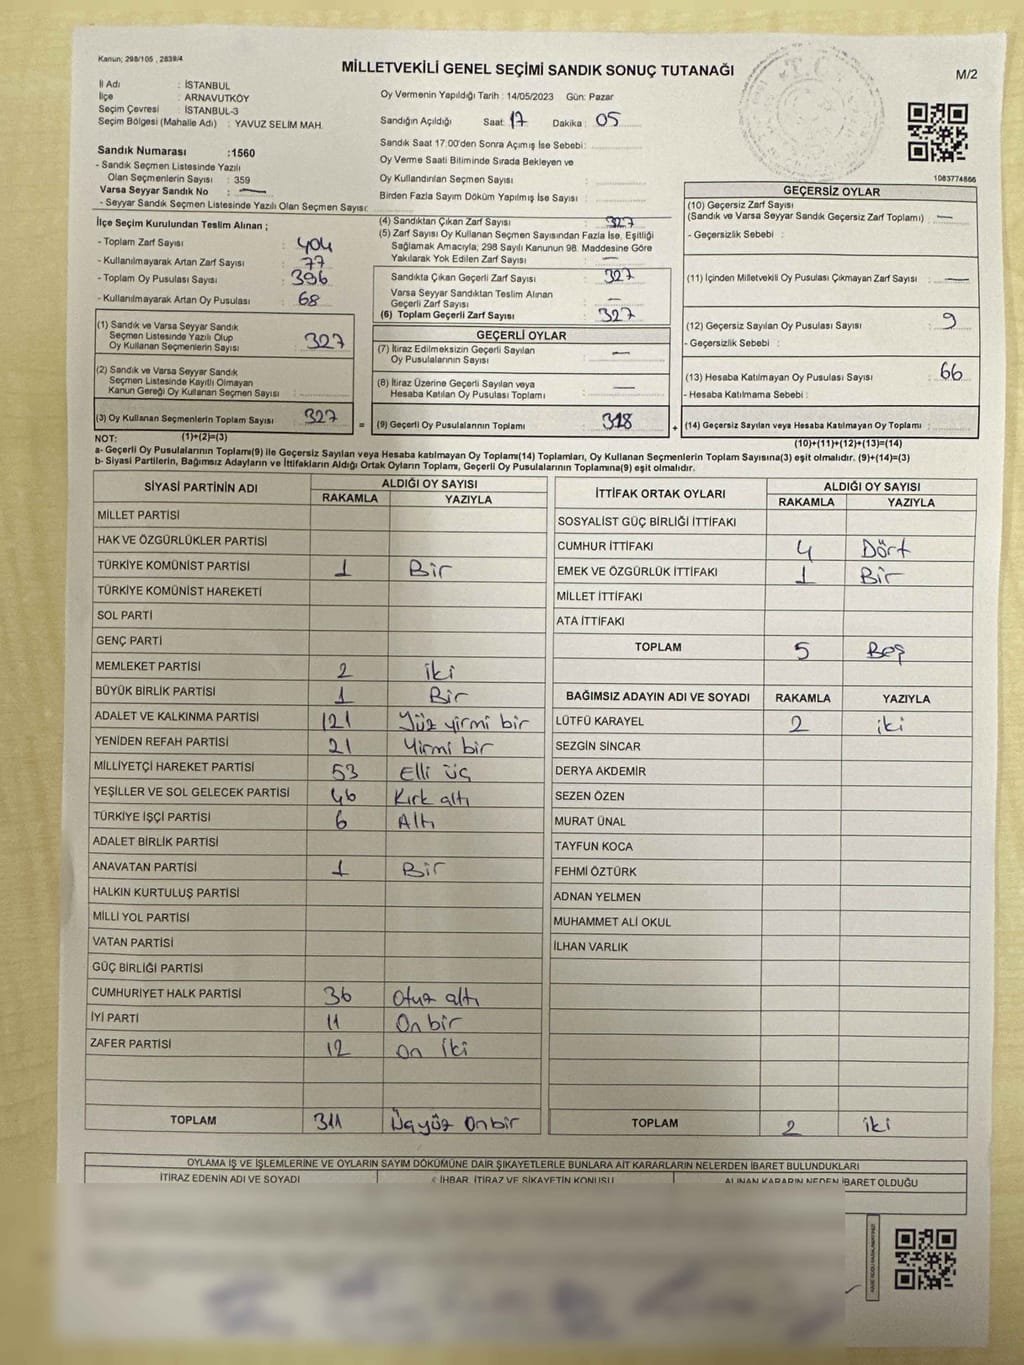 Kanun; 298/105 , 2839/4
MİLLETVEKİLİ GENEL SEÇİMİ SANDIK SONUÇ TUTANAĞI
M/2
T.C.
İl Adı : İSTANBUL
İlçe : ARNAVUTKÖY
Seçim Çevresi : İSTANBUL-3
Seçim Bölgesi (Mahalle Adı) : YAVUZ SELİM MAH.
Sandık Numarası :1560
- Sandık Seçmen Listesinde Yazılı
Olan Seçmenlerin Sayısı : 359
Varsa Seyyar Sandık No : —
- Seyyar Sandık Seçmen Listesinde Yazılı Olan Seçmen Sayısı:
Oy Vermenin Yapıldığı Tarih : 14/05/2023 Gün: Pazar
Sandığın Açıldığı Saat: 17 Dakika : 05
Sandık Saat 17:00'den Sonra Açılmış İse Sebebi:
Oy Verme Saati Bitiminde Sırada Bekleyen ve
Oy Kullandırılan Seçmen Sayısı :
Birden Fazla Sayım Döküm Yapılmış İse Sayısı :
1083774866
İlçe Seçim Kurulundan Teslim Alınan ;
- Toplam Zarf Sayısı : 404
- Kullanılmayarak Artan Zarf Sayısı : 77
- Toplam Oy Pusulası Sayısı : 396
- Kullanılmayarak Artan Oy Pusulası : 68
(1) Sandık ve Varsa Seyyar Sandık
Seçmen Listesinde Yazılı Olup
Oy Kullanan Seçmenlerin Sayısı : 327
(2) Sandık ve Varsa Seyyar Sandık
Seçmen Listesinde Kayıtlı Olmayan
Kanun Gereği Oy Kullanan Seçmen Sayısı :
(3) Oy Kullanan Seçmenlerin Toplam Sayısı : 327
(4) Sandıktan Çıkan Zarf Sayısı : 327
(5) Zarf Sayısı Oy Kullanan Seçmen Sayısından Fazla İse, Eşitliği
Sağlamak Amacıyla; 298 Sayılı Kanunun 98. Maddesine Göre
Yakılarak Yok Edilen Zarf Sayısı : —
Sandıkta Çıkan Geçerli Zarf Sayısı : 327
Varsa Seyyar Sandıktan Teslim Alınan
Geçerli Zarf Sayısı : —
(6) Toplam Geçerli Zarf Sayısı : 327
GEÇERLİ OYLAR
(7) İtiraz Edilmeksizin Geçerli Sayılan
Oy Pusulalarının Sayısı : —
(8) İtiraz Üzerine Geçerli Sayılan veya
Hesaba Katılan Oy Pusulası Toplamı : —
= (9) Geçerli Oy Pusulalarının Toplamı : 318
GEÇERSİZ OYLAR
(10) Geçersiz Zarf Sayısı :
(Sandık ve Varsa Seyyar Sandık Geçersiz Zarf Toplamı) —
- Geçersizlik Sebebi :
(11) İçinden Milletvekili Oy Pusulası Çıkmayan Zarf Sayısı : —
(12) Geçersiz Sayılan Oy Pusulası Sayısı : 9
- Geçersizlik Sebebi :
(13) Hesaba Katılmayan Oy Pusulası Sayısı : 66
- Hesaba Katılmama Sebebi :
+ (14) Geçersiz Sayılan veya Hesaba Katılmayan Oy Toplamı :
NOT: (1)+(2)=(3)
(10)+(11)+(12)+(13)=(14)
a- Geçerli Oy Pusulalarının Toplamı(9) ile Geçersiz Sayılan veya Hesaba katılmayan Oy Toplamı(14) Toplamları, Oy Kullanan Seçmenlerin Toplam Sayısına(3) eşit olmalıdır. (9)+(14)=(3)
b- Siyasi Partilerin, Bağımsız Adayların ve İttifakların Aldığı Ortak Oyların Toplamı, Geçerli Oy Pusulalarının Toplamına(9) eşit olmalıdır.
SİYASİ PARTİNİN ADI ALDIĞI OY SAYISI
RAKAMLA YAZIYLA
MİLLET PARTİSİ
HAK VE ÖZGÜRLÜKLER PARTİSİ
TÜRKİYE KOMÜNİST PARTİSİ 1 Bir
TÜRKİYE KOMÜNİST HAREKETİ
SOL PARTİ
GENÇ PARTİ
MEMLEKET PARTİSİ 2 iki
BÜYÜK BİRLİK PARTİSİ 1 Bir
ADALET VE KALKINMA PARTİSİ 121 Yüz yirmi bir
YENİDEN REFAH PARTİSİ 21 Yirmi bir
MİLLİYETÇİ HAREKET PARTİSİ 53 Elli üç
YEŞİLLER VE SOL GELECEK PARTİSİ 46 Kırk altı
TÜRKİYE İŞÇİ PARTİSİ 6 Altı
ADALET BİRLİK PARTİSİ
ANAVATAN PARTİSİ 1 Bir
HALKIN KURTULUŞ PARTİSİ
MİLLİ YOL PARTİSİ
VATAN PARTİSİ
GÜÇ BİRLİĞİ PARTİSİ
CUMHURİYET HALK PARTİSİ 36 Otuz altı
İYİ PARTİ 11 On bir
ZAFER PARTİSİ 12 On iki
TOPLAM 311 Üçyüz Onbir
İTTİFAK ORTAK OYLARI ALDIĞI OY SAYISI
RAKAMLA YAZIYLA
SOSYALİST GÜÇ BİRLİĞİ İTTİFAKI
CUMHUR İTTİFAKI 4 Dört
EMEK VE ÖZGÜRLÜK İTTİFAKI 1 Bir
MİLLET İTTİFAKI
ATA İTTİFAKI
TOPLAM 5 Beş
BAĞIMSIZ ADAYIN ADI VE SOYADI RAKAMLA YAZIYLA
LÜTFÜ KARAYEL 2 iki
SEZGİN SİNCAR
DERYA AKDEMİR
SEZEN ÖZEN
MURAT ÜNAL
TAYFUN KOCA
FEHMİ ÖZTÜRK
ADNAN YELMEN
MUHAMMET ALİ OKUL
İLHAN VARLIK
TOPLAM 2 iki
OYLAMA İŞ VE İŞLEMLERİNE VE OYLARIN SAYIM DÖKÜMÜNE DAİR ŞİKAYETLERLE BUNLARA AİT KARARLARIN NELERDEN İBARET BULUNDUKLARI
İTİRAZ EDENİN ADI VE SOYADI İHBAR, İTİRAZ VE ŞİKAYETİN KONUSU ALINAN KARARIN NEDEN İBARET OLDUĞU